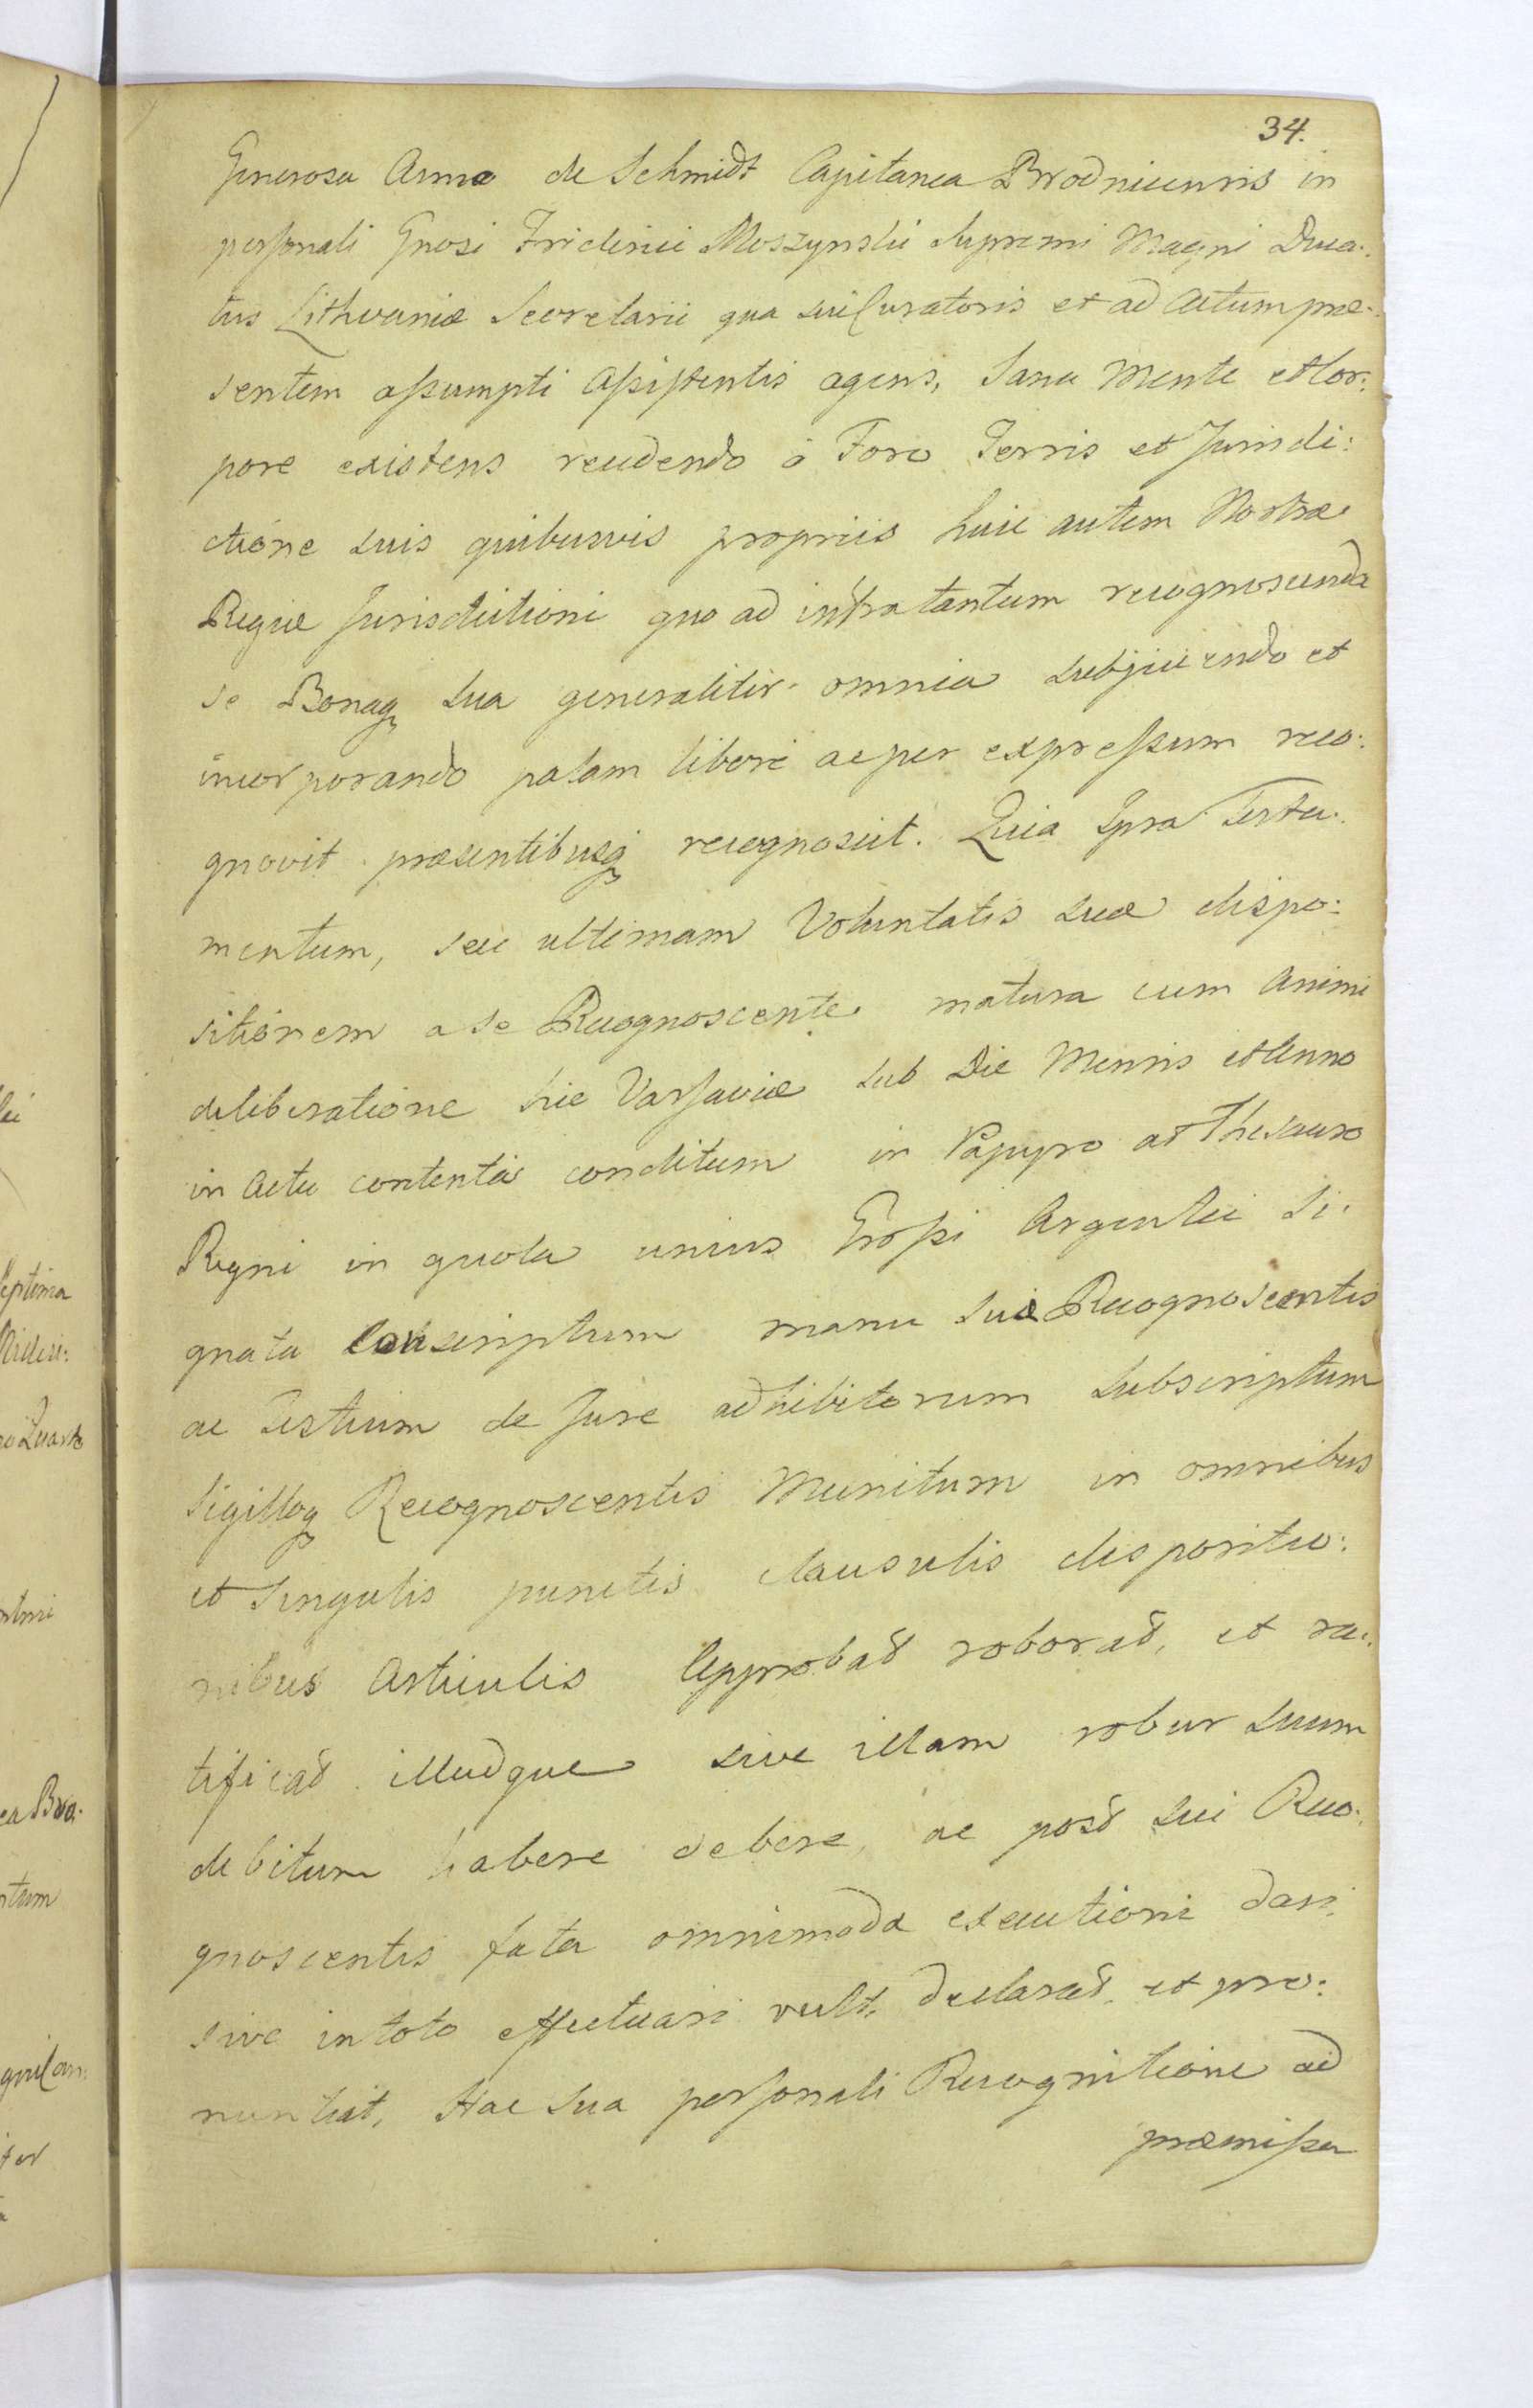 34.
Generosa Anna de Schmidt Capitanea Brodnicensis in
personali Gnosi Friderici Moszynskii Supremi Magni Duca:
tus Lithvaniæ Secretarii qua sui Curatoris et ad Actum præ:
sentem assumpti Assistentis agens, Sana Mente et Cor:
pore existens recedendo à Foro Terris et Jurisdi:
ctione suis quibusvis propriis huic autem Nostræ
Regiæ Jurisdictioni quo ad infra tantum recognoscenda
se Bonaq sua generaliter omnia subjiciendo et
incorporando palam libere ac per expressum reco:
gnovit præsentibusq recognoscit. Quia Ipsa Testa:
mentum, seu ultimam Voluntatis suæ dispo:
sitionem a se Recognoscente matura cum Animi
deliberatione hic Varsaviæ sub Die Mensis et Anno
in Actu contentis conditum in Papyro at Thesauro
Regni in quota unius Grossi Argentei Si:
gnata Conscriptum manu suæ Recognoscentis
ac Testium de Jure adhibitorum subscriptum
Sigilloq Recognoscentis Munitum in omnibus
et singulis punctis clausulis dispositio:
nibus Articulis Approbat roborat, et ra:
tificat illudque sive illam robur suum
debitum habere debere, ac post sui Reco:
gnoscentis fata omnimoda executioni dari
sive in toto effectuari vult, declarat et pro:
nuntiat, Hac sua personali Recognitione ad
præmissa
lei
septima
Quarto
ea Bro:
ntum